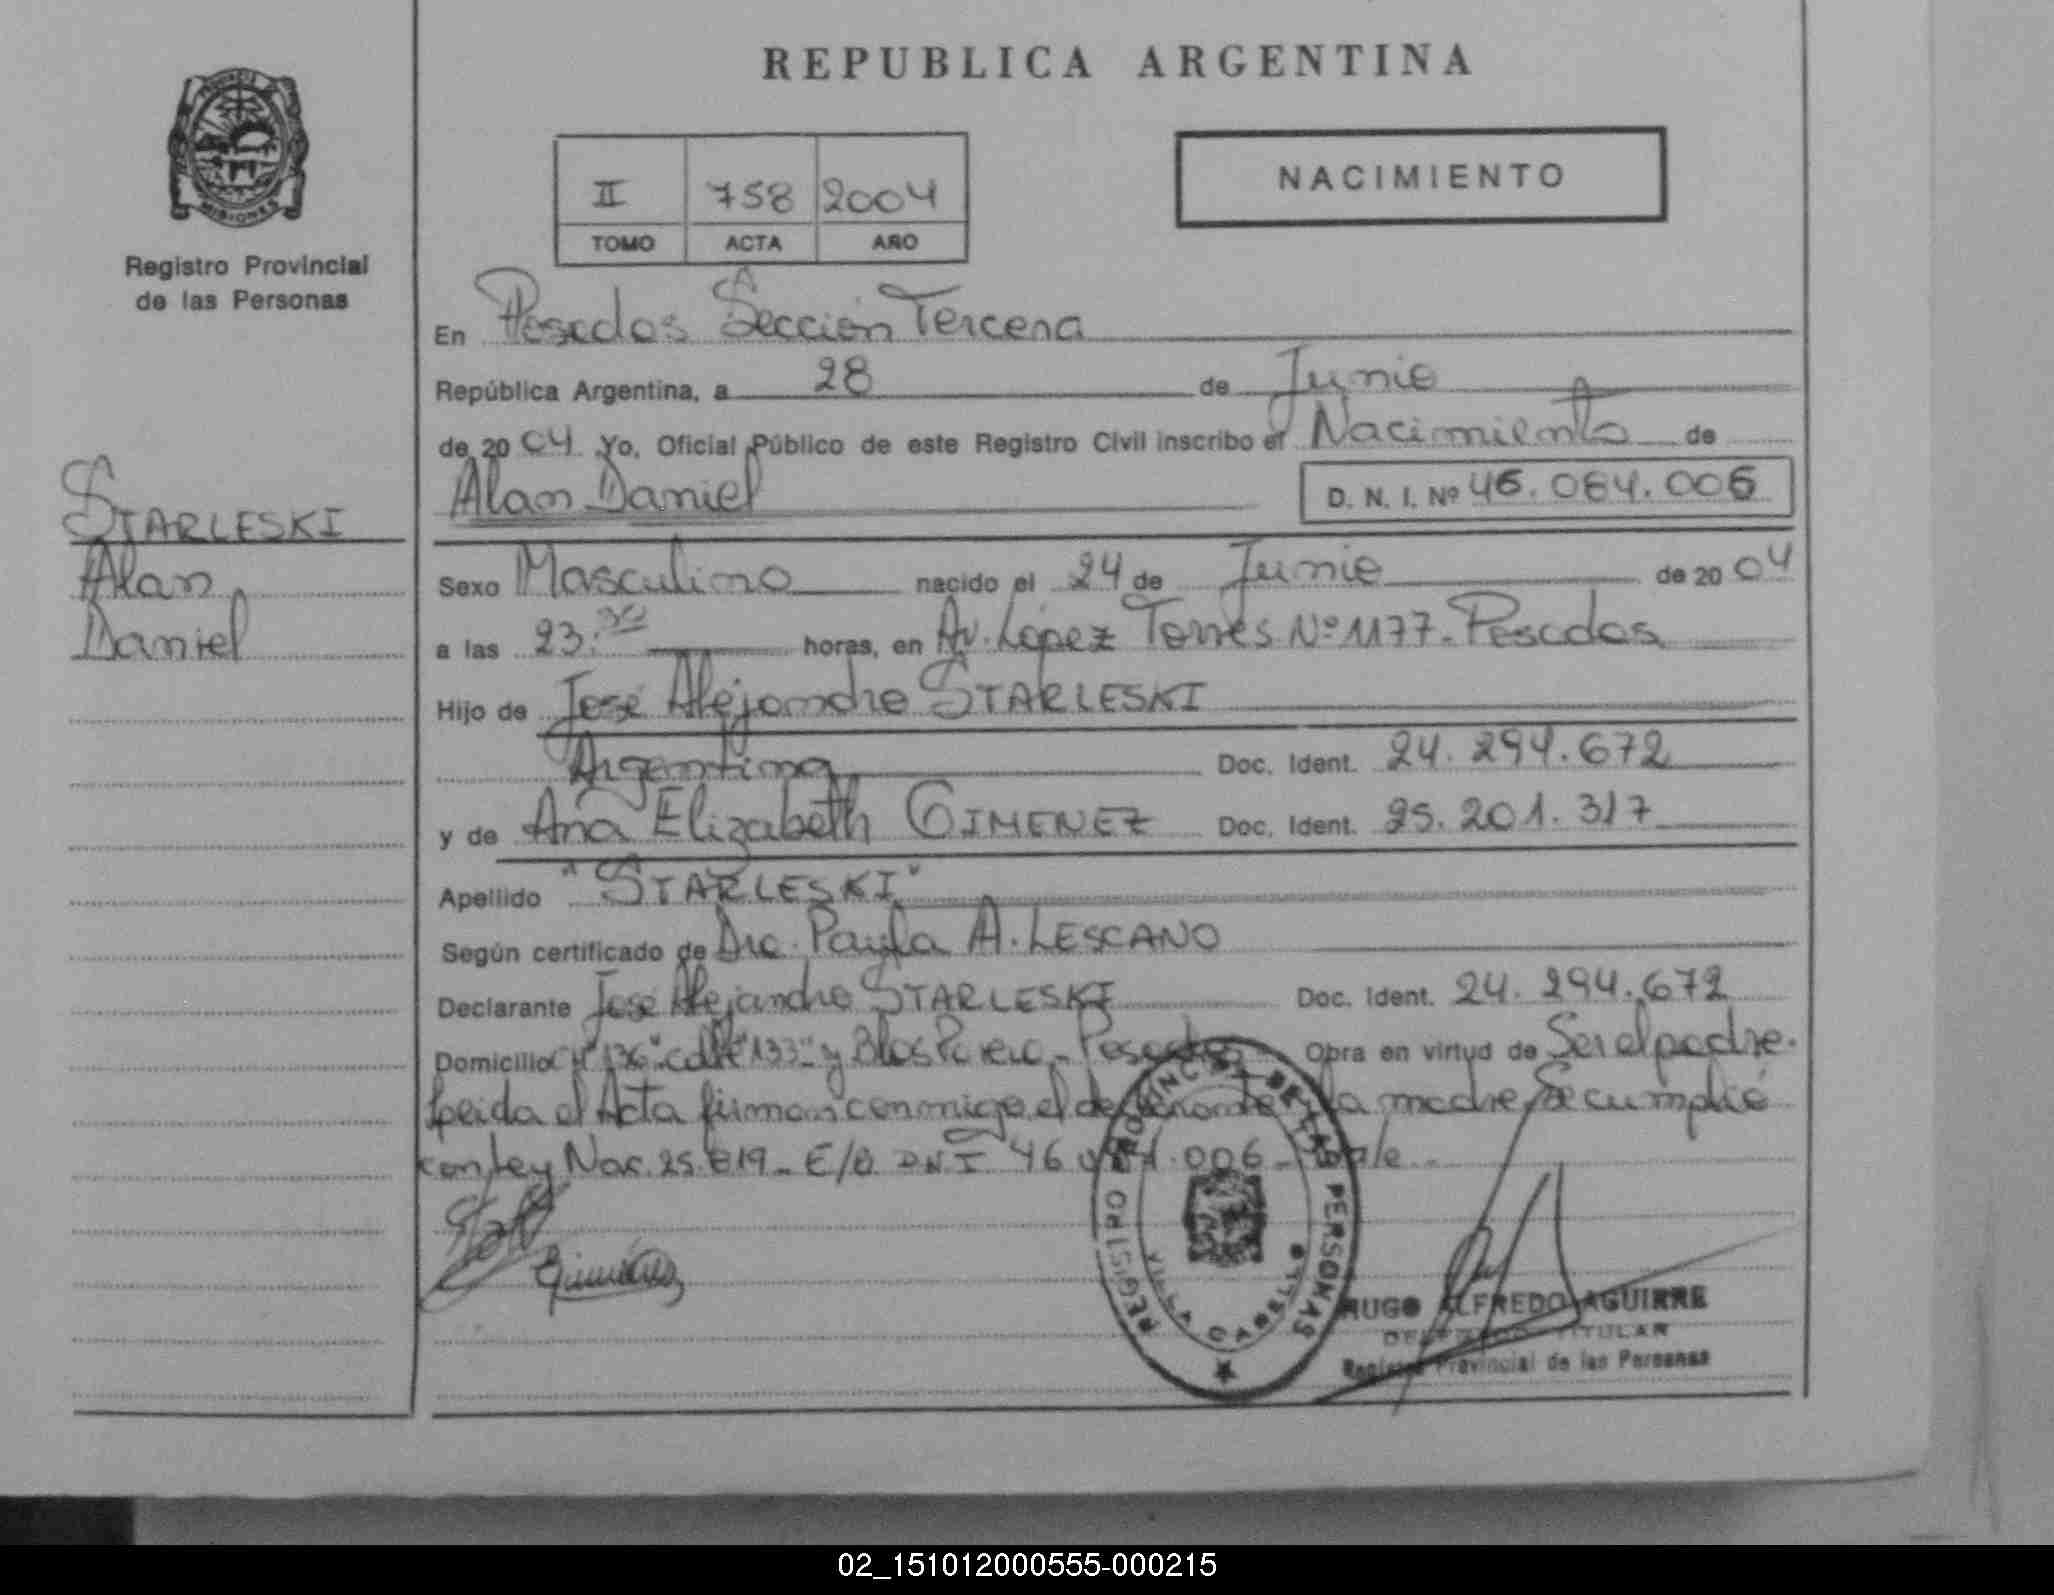 REPUBLICA ARGENTINA
PROVINCIA DE
MISIONES
Registro Provincial
de las Personas
II 758 2004
TOMO ACTA AÑO
NACIMIENTO
STARLESKI
Alan
Daniel
En Posadas Sección Tercera
República Argentina, a 28 de Junio
de 2004 Yo, Oficial Público de este Registro Civil inscribo el Nacimiento de
Alan Daniel D. N. I. Nº 46.084.006
Sexo Masculino nacido el 24 de Junio de 2004
a las 23:30 horas, en Av. López Torres Nº 1177- Posadas
Hijo de José Alejandro STARLESKI
Argentina Doc. Ident. 24.294.672
y de Ana Elizabeth GIMENEZ Doc. Ident. 25.201.317
Apellido "STARLESKI"
Según certificado de Dra. Paula A. LESCANO
Declarante José Alejandro STARLESKI Doc. Ident. 24.294.672
Domicilio CH"136" calle"133" y Blas Parera - Posadas Obra en virtud de Ser el padre.
Leida el Acta firman conmigo el declarante y la madre, Se cumplió
con Ley Nac. 25.819 - E/A DNI 46 084.006 - Vale -
REGISTRO PROVINCIAL DE LAS PERSONAS
VILLA CABELLO
HUGO ALFREDO AGUIRRE
DELEGADO TITULAR
Registro Provincial de las Personas
02_151012000555-000215